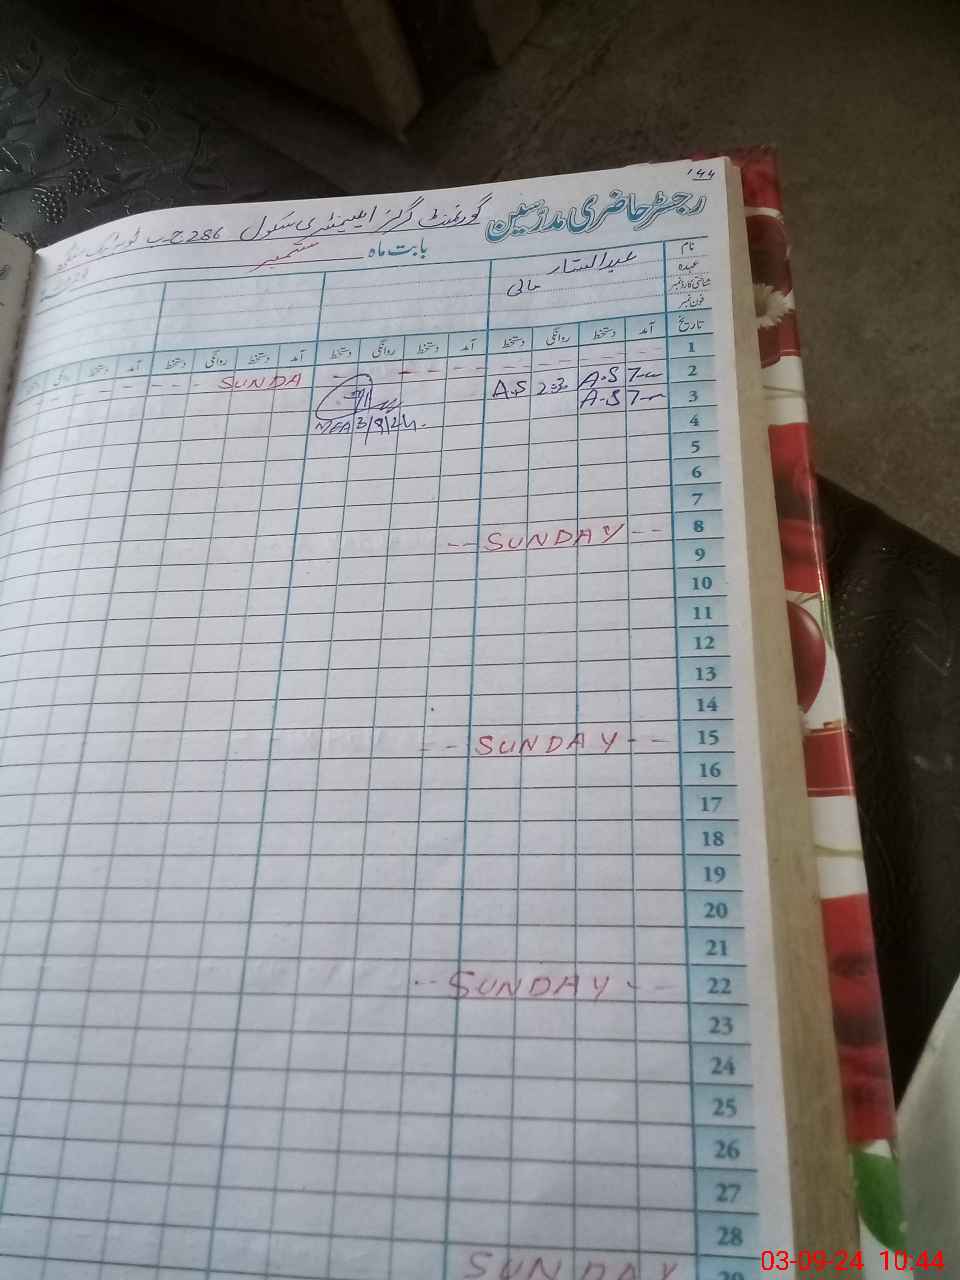 ۱۴۴
رجسٹر حاضری مدرسین گورنمنٹ گرلز ایلیمنٹری سکول 286 ج۔ب
بابت ماہ ستمبر
نام عبدالستار
عہدہ مالی
شناختی کارڈ نمبر
فون نمبر
تاریخ آمد دستخط روانگی دستخط آمد دستخط روانگی دستخط آمد دستخط روانگی دستخط آمد دستخط روانگی
1 SUNDA
2 A.S A.S
3 A.S
4
5
6
7
8 -- SUNDAY --
9
10
11
12
13
14
15 -- SUNDAY --
16
17
18
19
20
21
22 -- SUNDAY --
23
24
25
26
27
28
29 SUNDAY
03-09-24 10:44